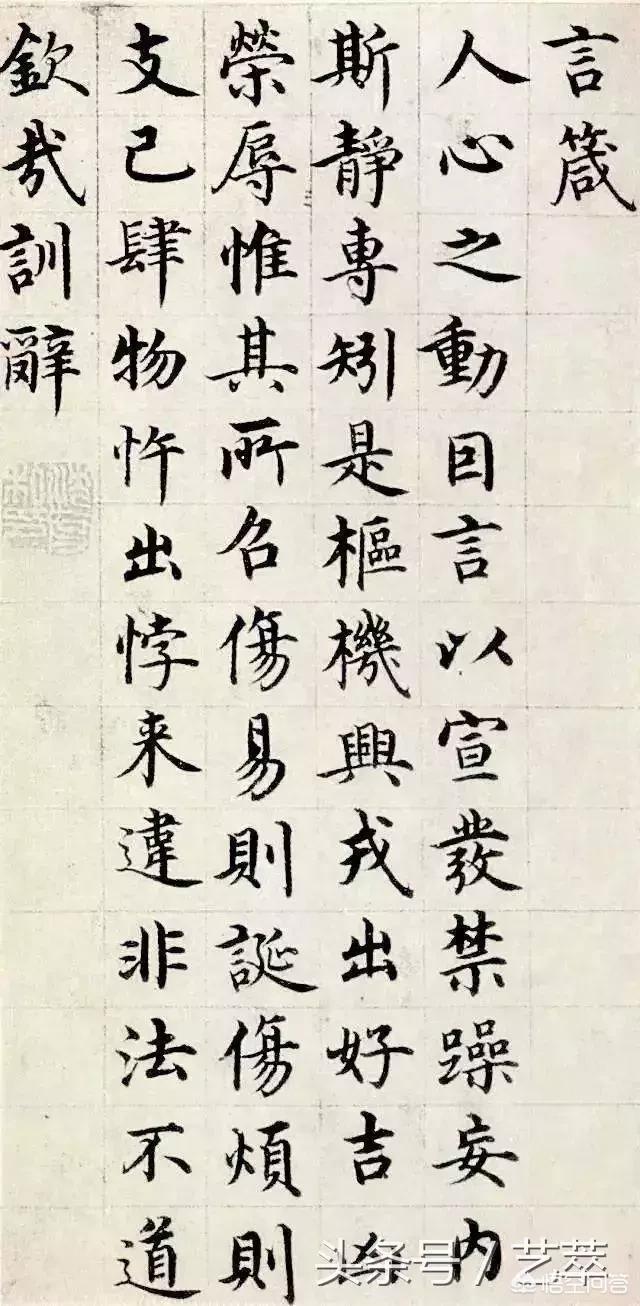 言箴
人心之動因言以宣發禁躁妄内
斯靜專矧是樞機興戎出好吉
榮辱惟其所召傷易則誕傷煩則
支己肆物忤出悖来違非法不道
欽哉訓辭
头条号 / 艺萃
悟空问答